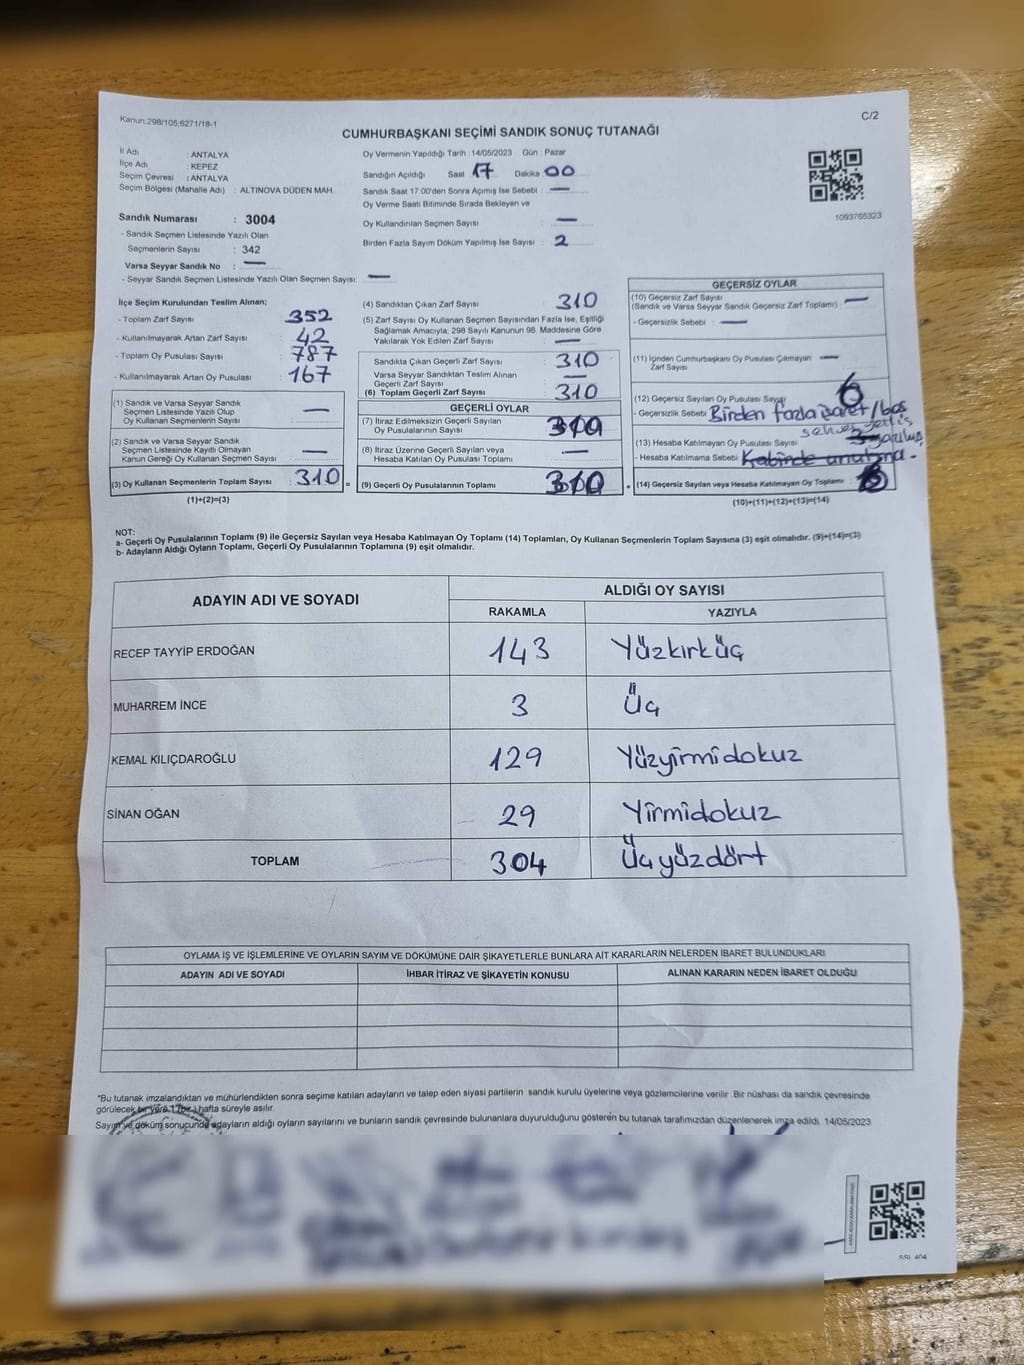 Kanun:298/105,6271/18-1
C/2
CUMHURBAŞKANI SEÇİMİ SANDIK SONUÇ TUTANAĞI
İl Adı : ANTALYA
İlçe Adı : KEPEZ
Seçim Çevresi : ANTALYA
Seçim Bölgesi (Mahalle Adı) : ALTINOVA DÜDEN MAH.
Oy Vermenin Yapıldığı Tarih : 14/05/2023 Gün : Pazar
Sandığın Açıldığı Saat 17 Dakika 00
Sandık Saat 17:00'den Sonra Açılmış İse Sebebi : —
Oy Verme Saati Bitiminde Sırada Bekleyen ve
Oy Kullandırılan Seçmen Sayısı : —
Birden Fazla Sayım Döküm Yapılmış İse Sayısı : 2
1093765323
Sandık Numarası : 3004
- Sandık Seçmen Listesinde Yazılı Olan
Seçmenlerin Sayısı : 342
Varsa Seyyar Sandık No : —
- Seyyar Sandık Seçmen Listesinde Yazılı Olan Seçmen Sayısı : —
İlçe Seçim Kurulundan Teslim Alınan;
- Toplam Zarf Sayısı : 352
- Kullanılmayarak Artan Zarf Sayısı : 42
- Toplam Oy Pusulası Sayısı : 787
- Kullanılmayarak Artan Oy Pusulası : 167
(1) Sandık ve Varsa Seyyar Sandık
Seçmen Listesinde Yazılı Olup
Oy Kullanan Seçmenlerin Sayısı : —
(2) Sandık ve Varsa Seyyar Sandık
Seçmen Listesinde Kayıtlı Olmayan
Kanun Gereği Oy Kullanan Seçmen Sayısı : —
(3) Oy Kullanan Seçmenlerin Toplam Sayısı : 310 =
(1)+(2)=(3)
(4) Sandıktan Çıkan Zarf Sayısı : 310
(5) Zarf Sayısı Oy Kullanan Seçmen Sayısından Fazla İse, Eşitliği
Sağlamak Amacıyla; 298 Sayılı Kanunun 98. Maddesine Göre
Yakılarak Yok Edilen Zarf Sayısı : —
Sandıkta Çıkan Geçerli Zarf Sayısı : 310
Varsa Seyyar Sandıktan Teslim Alınan
Geçerli Zarf Sayısı : —
(6) Toplam Geçerli Zarf Sayısı : 310
GEÇERLİ OYLAR
(7) İtiraz Edilmeksizin Geçerli Sayılan
Oy Pusulalarının Sayısı :
(8) İtiraz Üzerine Geçerli Sayılan veya
Hesaba Katılan Oy Pusulası Toplamı : —
(9) Geçerli Oy Pusulalarının Toplamı : +
GEÇERSİZ OYLAR
(10) Geçersiz Zarf Sayısı : —
(Sandık ve Varsa Seyyar Sandık Geçersiz Zarf Toplamı)
- Geçersizlik Sebebi : —
(11) İçinden Cumhurbaşkanı Oy Pusulası Çıkmayan : —
Zarf Sayısı
(12) Geçersiz Sayılan Oy Pusulası Sayısı : 6
- Geçersizlik Sebebi : Birden fazla işaret / boş
(13) Hesaba Katılmayan Oy Pusulası Sayısı :
- Hesaba Katılmama Sebebi : Kabinde unutma -
(14) Geçersiz Sayılan veya Hesaba Katılmayan Oy Toplamı :
(10)+(11)+(12)+(13)=(14)
NOT:
a- Geçerli Oy Pusulalarının Toplamı (9) ile Geçersiz Sayılan veya Hesaba Katılmayan Oy Toplamı (14) Toplamları, Oy Kullanan Seçmenlerin Toplam Sayısına (3) eşit olmalıdır. (9)+(14)=(3)
b- Adayların Aldığı Oyların Toplamı, Geçerli Oy Pusulalarının Toplamına (9) eşit olmalıdır.
ADAYIN ADI VE SOYADI ALDIĞI OY SAYISI
RAKAMLA YAZIYLA
RECEP TAYYİP ERDOĞAN 143 Yüzkırküç
MUHARREM İNCE 3 Üç
KEMAL KILIÇDAROĞLU 129 Yüzyirmidokuz
SİNAN OĞAN 29 Yirmidokuz
TOPLAM 304 Üçyüzdört
OYLAMA İŞ VE İŞLEMLERİNE VE OYLARIN SAYIM VE DÖKÜMÜNE DAİR ŞİKAYETLERLE BUNLARA AİT KARARLARIN NELERDEN İBARET BULUNDUKLARI
ADAYIN ADI VE SOYADI İHBAR İTİRAZ VE ŞİKAYETİN KONUSU ALINAN KARARIN NEDEN İBARET OLDUĞU
*Bu tutanak imzalandıktan ve mühürlendikten sonra seçime katılan adayların ve talep eden siyasi partilerin sandık kurulu üyelerine veya gözlemcilerine verilir. Bir nüshası da sandık çevresinde
görülecek bir yere 1 (bir) hafta süreyle asılır.
Sayım ve döküm sonucunda adayların aldığı oyların sayılarını ve bunların sandık çevresinde bulunanlara duyurulduğunu gösteren bu tutanak tarafımızdan düzenlenerek imza edildi. 14/05/2023
SSL 404